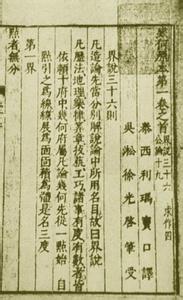 幾何原本第一卷之首 界說三十六 求作四
公論十九
泰西利瑪竇口譯
吳淞徐光啓筆受
界說三十六則
凡造論先當分別解說論中所用名目故曰界說
凡歷法地理樂律算章技藝工巧諸事有度有數者皆
依賴十府中幾何府屬凡論幾何先從一點始自
點引之爲線線展爲面面積爲體是名三度
第一界
點者無分